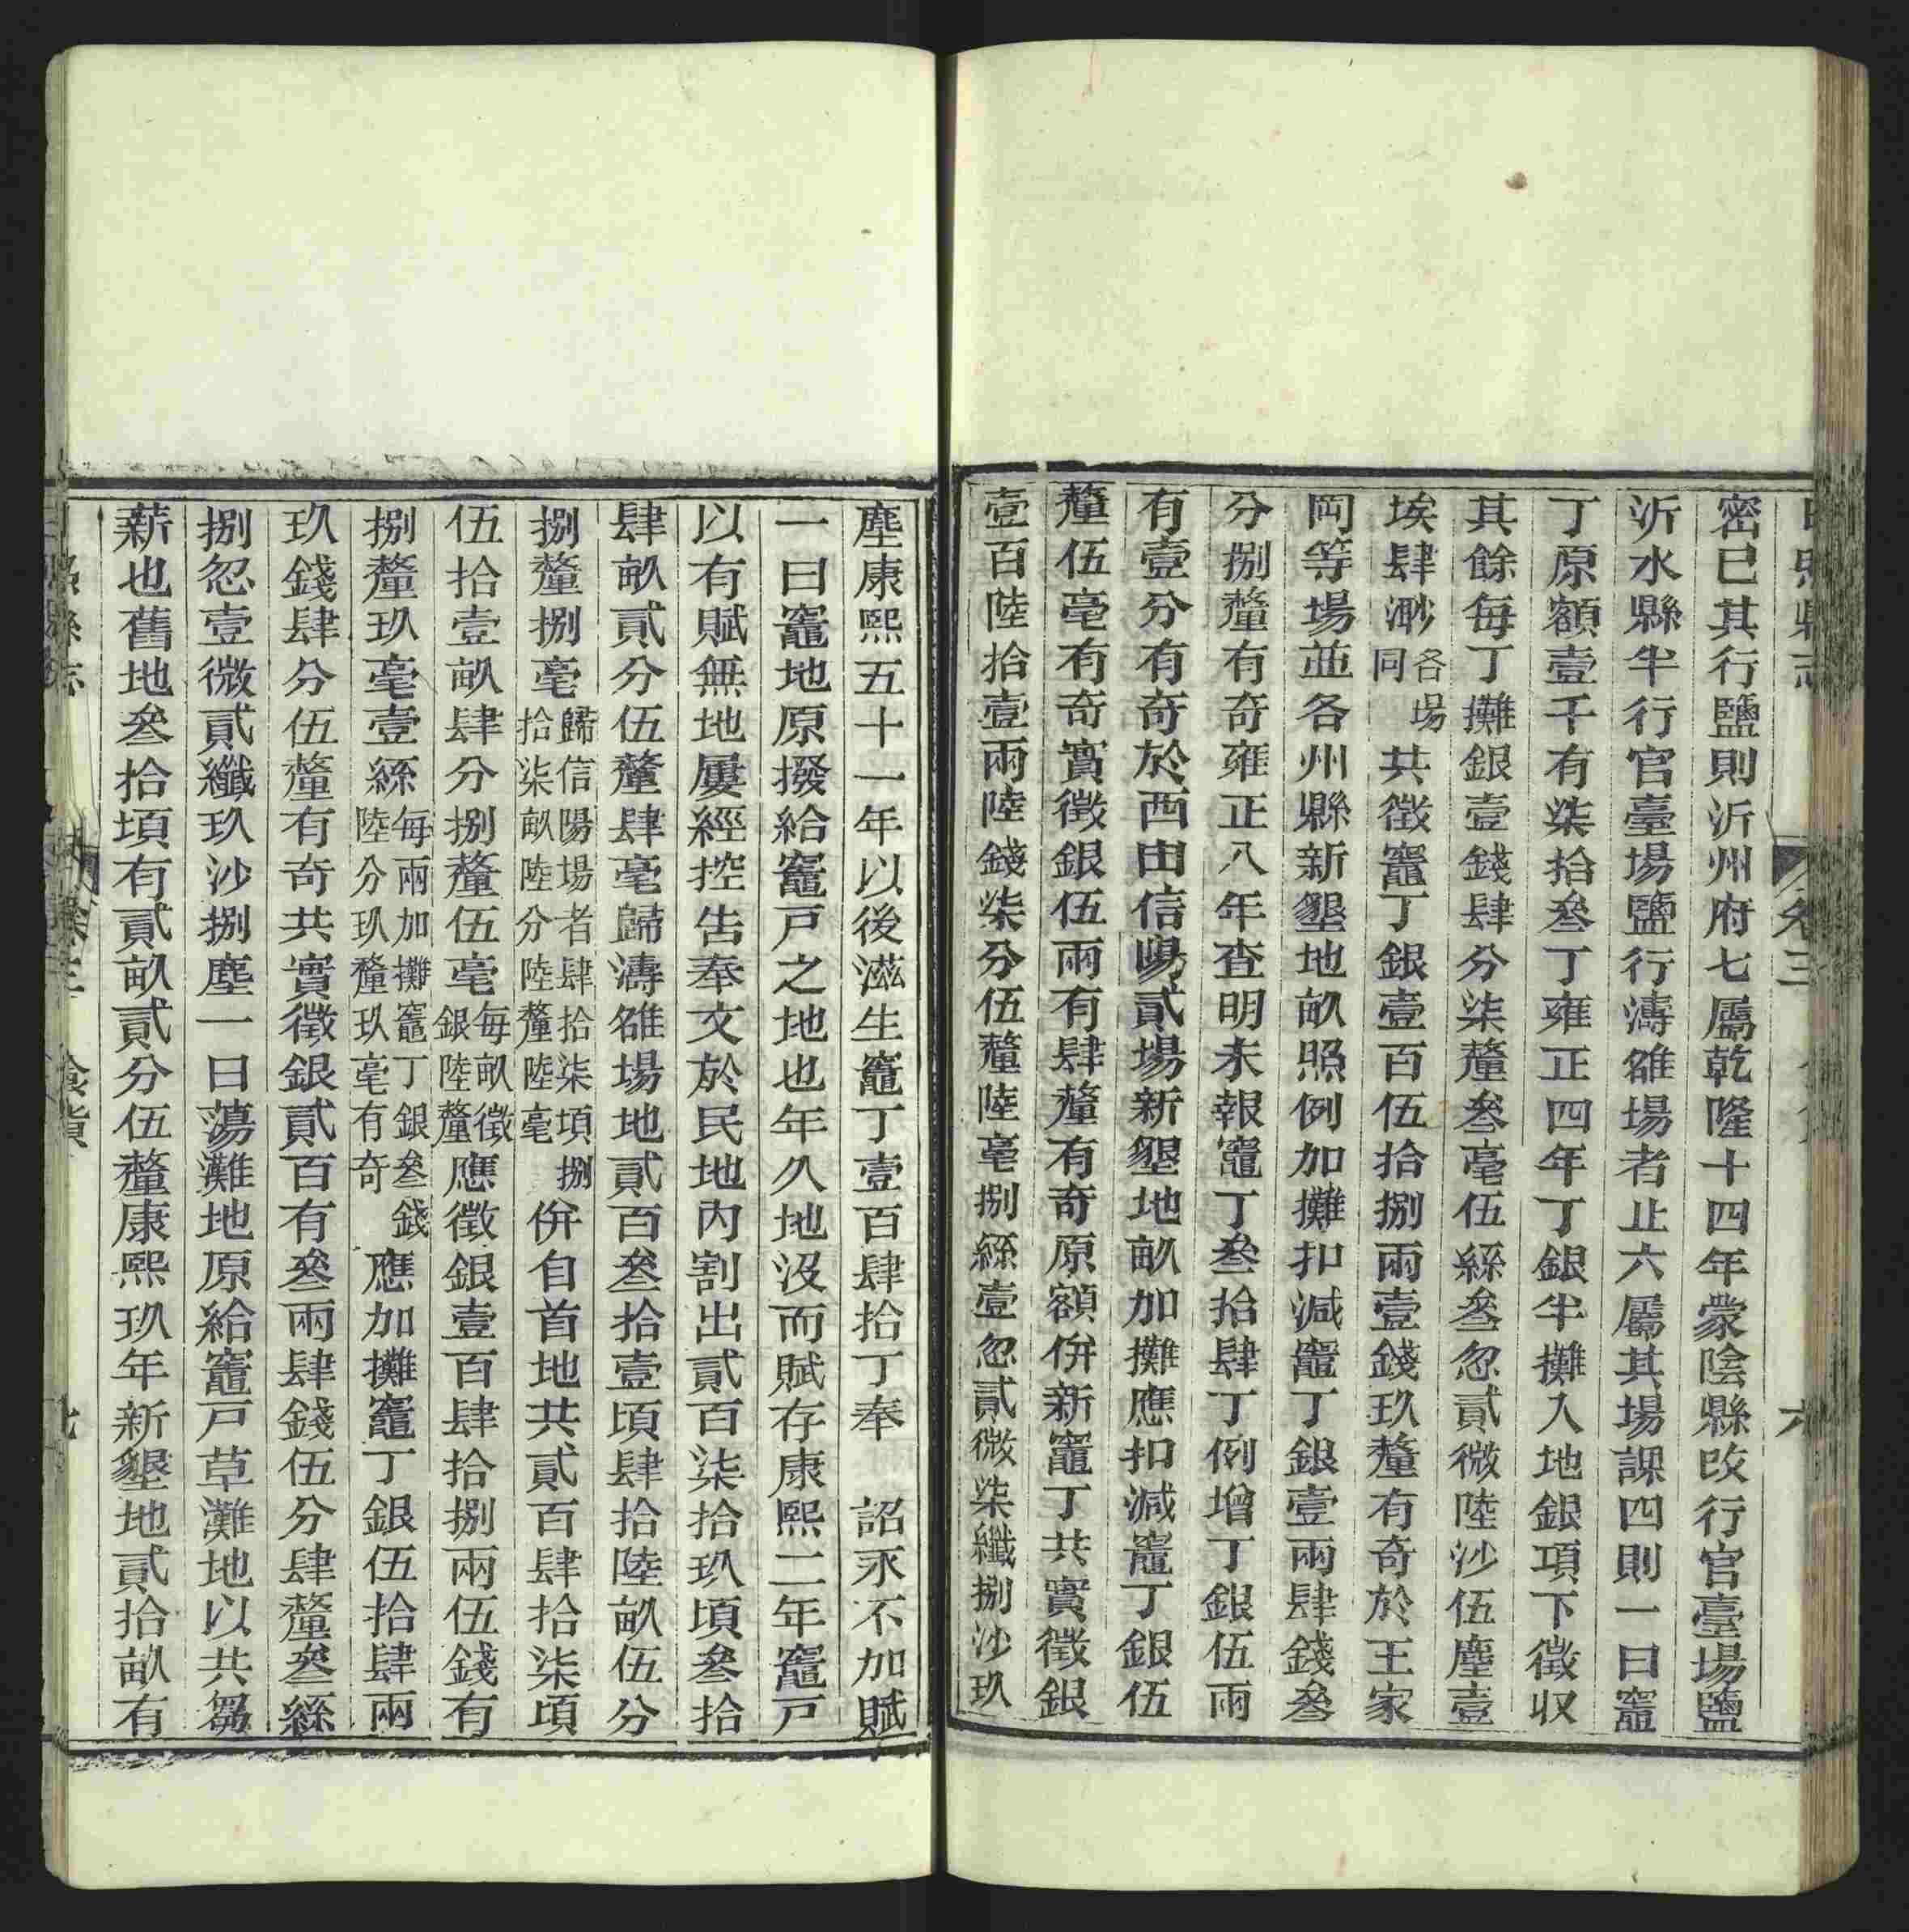 密已其行鹽則沂州府七屬乾隆十四年蒙陰縣改行官臺場鹽
沂水縣半行官臺場鹽行濤雒場者止六屬其場課四則一曰竈
丁原額壹千有柒拾叁丁雍正四年丁銀半攤入地銀項下徵収
其餘每丁攤銀壹錢肆分柒釐叁毫伍絲叁忽貳微陸沙伍塵壹
埃肆渺各場同共徵竈丁銀壹百伍拾捌兩壹錢玖釐有奇於王家
岡等場並各州縣新墾地畝照例加攤扣減竈丁銀壹兩肆錢叁
分捌釐有奇雍正八年查明未報竈丁叁拾肆丁例增丁銀伍兩
有壹分有奇於西由信陽貳場新墾地畝加攤應扣減竈丁銀伍
釐伍毫有奇實徵銀伍兩有肆釐有奇原額併新竈丁共實徵銀
壹百陸拾壹兩陸錢柒分伍釐陸毫捌絲壹忽貳微柒纖捌沙玖
塵康熙五十一年以後滋生竈丁壹百肆拾丁奉 詔永不加賦
一曰竈地原撥給竈戸之地也年久地沒而賦存康熙二年竈戸
以有賦無地屢經控告奉文於民地內割出貳百柒拾玖頃叁拾
肆畝貳分伍釐肆毫歸濤雒場地貳百叁拾壹頃肆拾陸畝伍分
捌釐捌毫歸信陽場者肆拾柒頃捌拾柒畝陸分陸釐陸毫併自首地共貳百肆拾柒頃
伍拾壹畝肆分捌釐伍毫每畝徵銀陸釐應徵銀壹百肆拾捌兩伍錢有
捌釐玖毫壹絲每兩加攤竈丁銀叁錢陸分玖釐玖毫有奇應加攤竈丁銀伍拾肆兩
玖錢肆分伍釐有奇共實徵銀貳百有叁兩肆錢伍分肆釐叁絲
捌忽壹微貳纖玖沙捌塵一曰蕩灘地原給竈戸草灘地以共芻
薪也舊地叁拾頃有貳畝貳分伍釐康熙玖年新墾地貳拾畝有